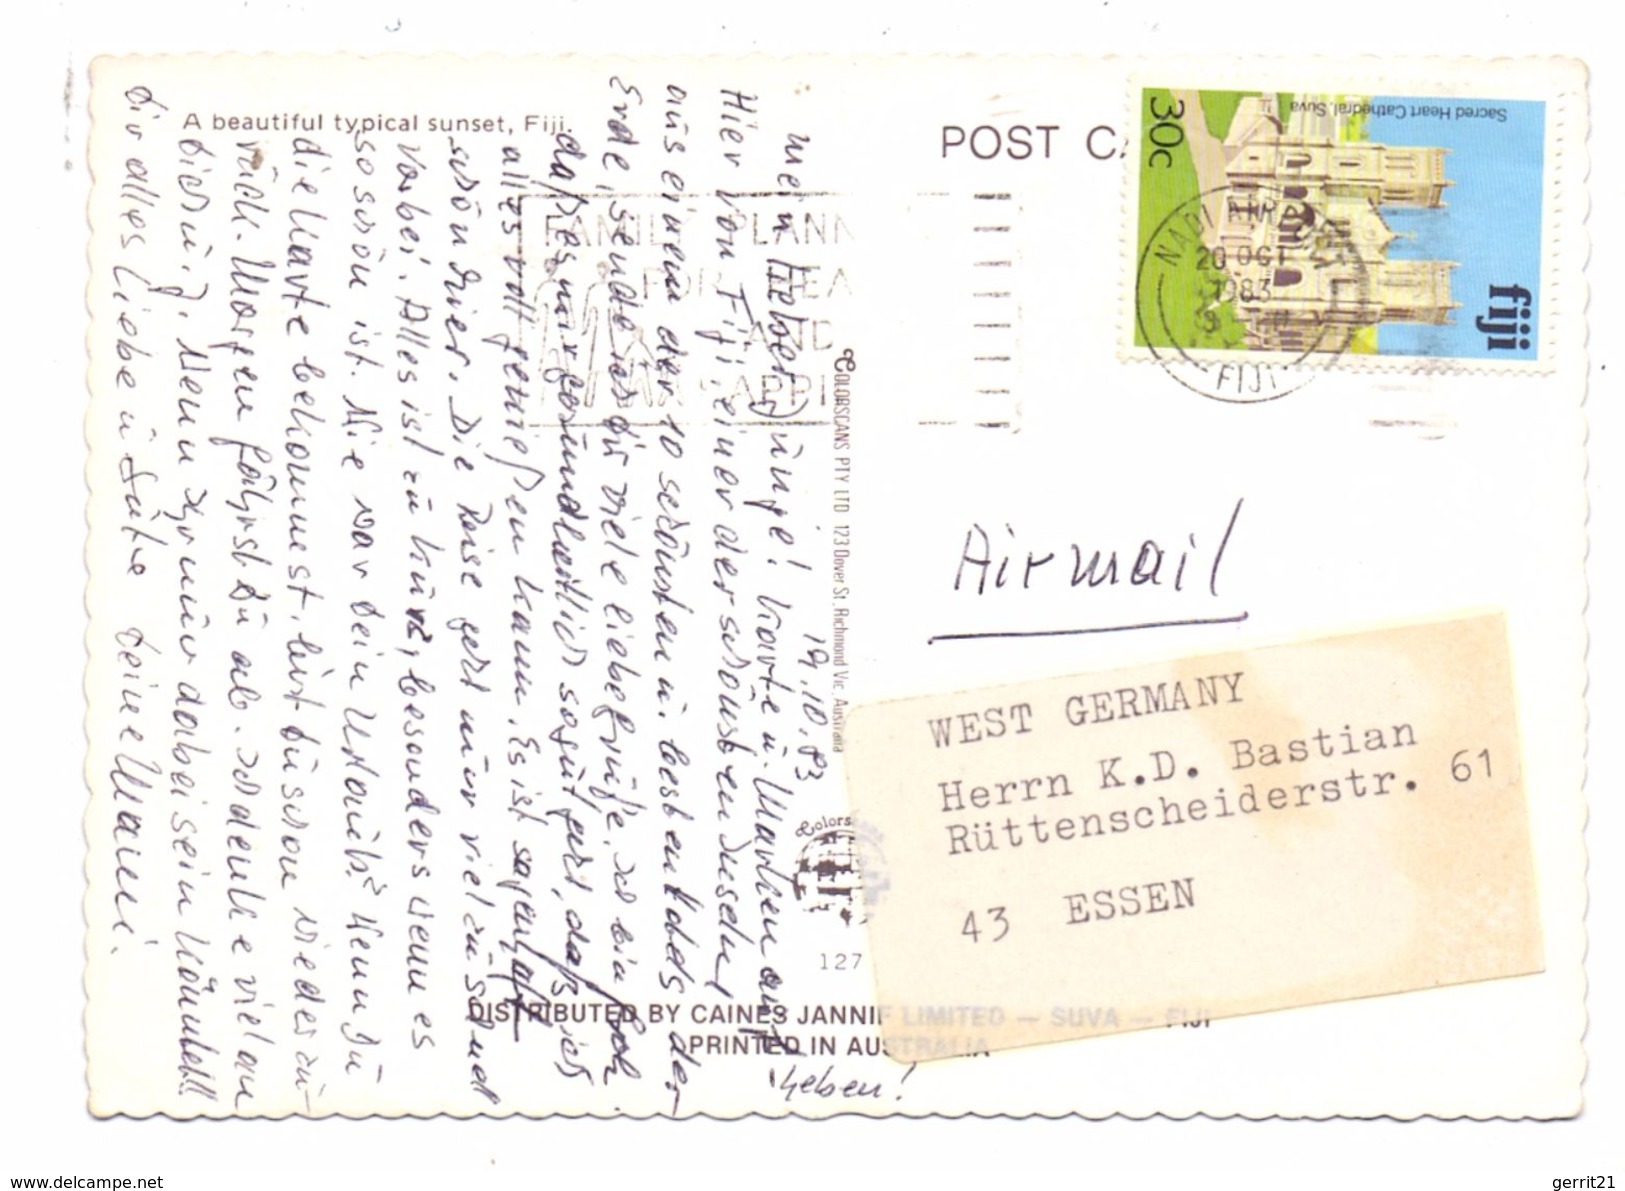 A beautiful typical sunset, Fiji.
POST CA
30c
Sacred Heart Cathedral, Suva
fiji
NADI AIRPORT
20 OCT
1983
FIJI
FAMILY PLANN
FOR
AND
HAPPI
19.10.83
mein lieber Junge!
Hier von Fiji, einer der schönsten Inseln
aus einem der 10 schönsten u. best en Hotels der
Erde, sende ich dir viele liebe Grüße. Ich bin froh
daß es mir gesundheitlich so gut geht, daß ich
alles voll genießen kann. Es ist sagenhaft
schön hier. Die Reise geht nur viel zu schnell
vorbei. Alles ist zu kurz, besonders wenn es
so schön ist. Wie war dein Urlaub? Wenn du
die Karte bekommst, bist du schon wieder zu-
rück. Morgen fährst du ab. Ich denke viel an
dich u.
dir alles Liebe u. Gute deine Mami.
Karte u. Marken auf-
heben!
COLORSCANS PTY LTD 123 Dover St. Richmond Vic. Australia
Colors
127
DISTRIBUTED BY CAINES JANNIF LIMITED – SUVA – FIJI
PRINTED IN AUSTRALIA
Airmail
WEST GERMANY
Herrn K.D. Bastian
Rüttenscheiderstr. 61
43 ESSEN
www.delcampe.net
gerrit21